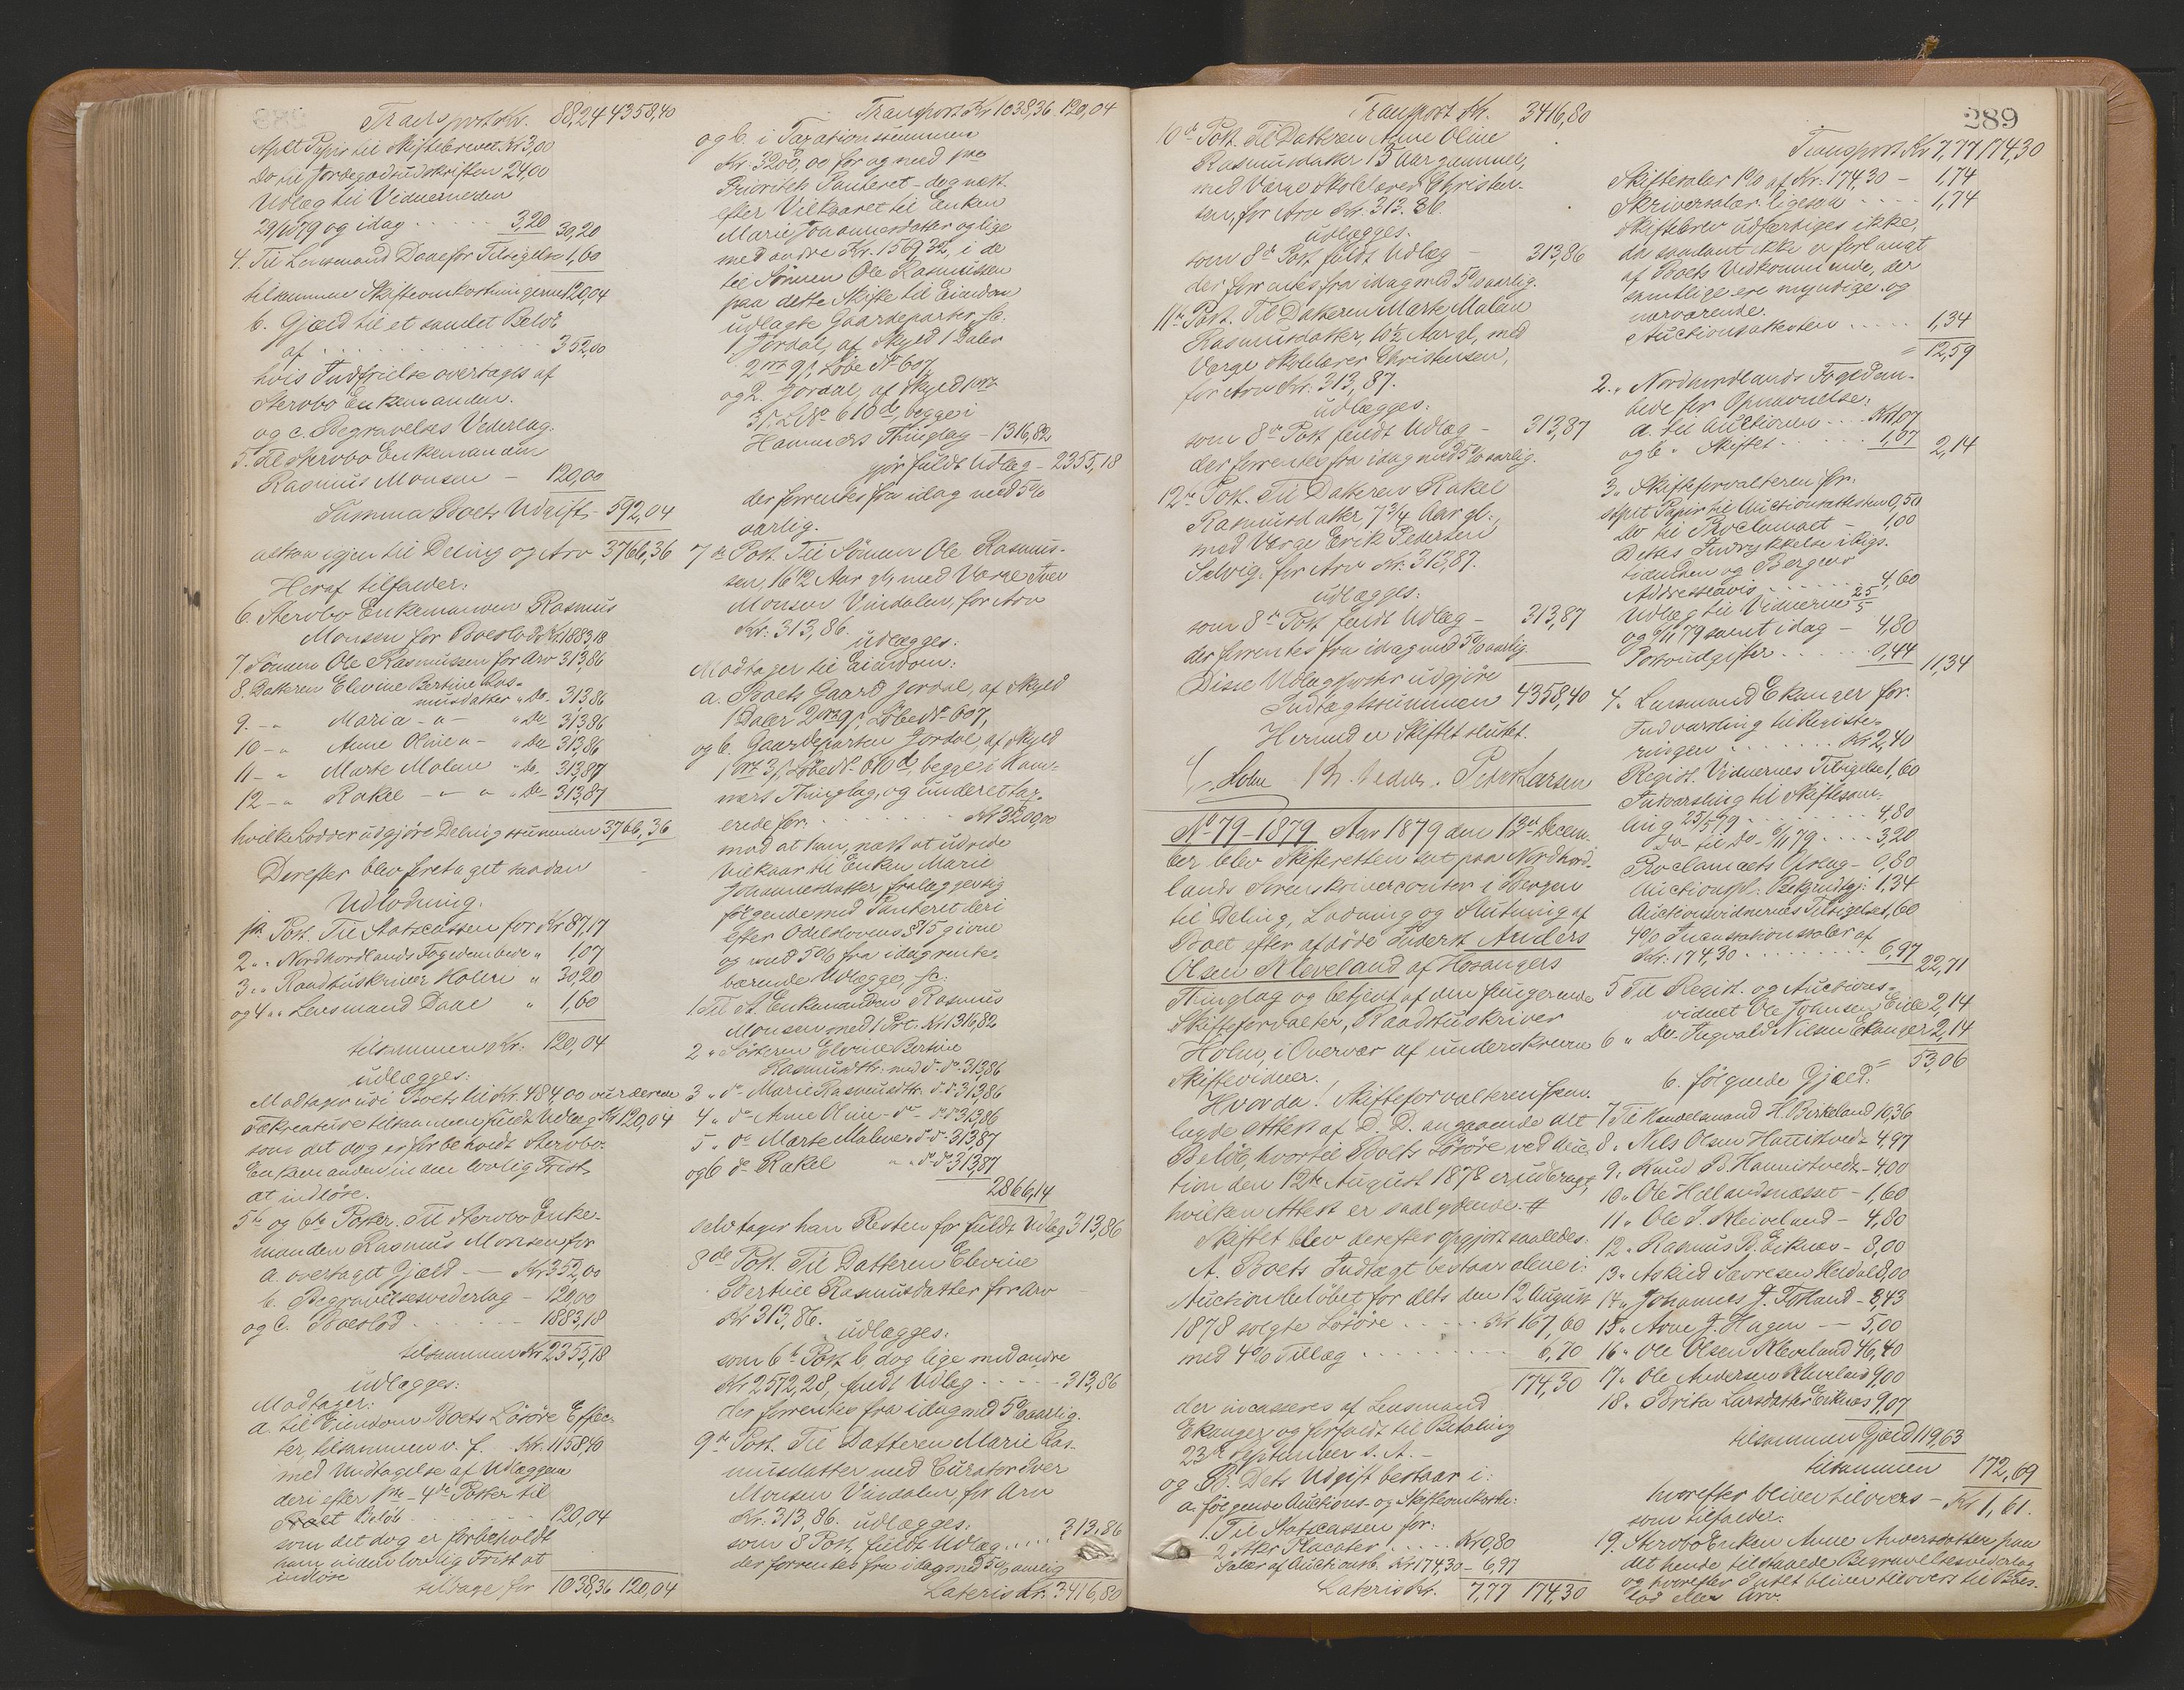 Transport Kr. 88,24 4358,40
stplt Papir til Skiftebrevet Kr 3,00
Do til Jordegodsudskriften 24,00
Udlæg til Vidnerne den
29/10 79 og idag . . . . . 3,20 30,20
4. Til Lensmand Daae for Tilsigelse 1,60
tilsammen Skifteomkostningerne 120,04
b. Gjæld til et samlet Beløb
af . . . . . . . 352,00
hvis Indfrielse overtages af
Sterbo Enkemanden.
og c. Begravelses Vederlag.
5. Til Sterbo Enkemanden
Rasmus Monsen — 120,00
Summa Boets Udgift - 592,04
altsaa igjen til Deling og Arv 3766,36
Heraf tilfalder:
6. Sterbo Enkemanden Rasmus
Monsen for Boeslod Kr. 1883,18
7 Sønnen Ole Rasmussen for Arv 313,86
8. Datteren Elevine Bertine Ras-
musdatter " Do. 313,86
9. - " Maria - " - " Do 313,86
10 - " Anne Oline " - " Do 313,86
11 - " Marte Malene " Do. 313,87
12 - " Rakel - " - " Do 313,87
hvilke Lodder udgjøre Delingssummen 3766,36
Derefter blev foretaget saadan
Udlodning.
1ste Post. Til Statscassen for Kr 87,17
2 " " Nordhordlands Fogedembede " 1,07
3 " " Raadstuskriver Holm " 30,20
og 4 " " Lensmand Daae " 1,60
tilsammen Kr. 120,04
udlægges:
Modtager udi Boets til Kr. 484,00 vurderede
Fækreature tilsammen fuldt Udlæg Kr 120,04
som det dog er forbeholdt Sterbo-
Enkemanden inden lovlig Frist
at indløse.
5te og 6te Poster. Til Sterbo Enke-
manden Rasmus Monsen for
a. overtaget Gjæld — Kr 352,00
b. Begravelsesvederlag — 120,00
og c. Boeslod . . . . . 1883,18
tilsammen Kr 2355,18
udlægges:
Modtager:
a. til Eiendom Boets Løsøre Effec-
ter, tilsammen v. f. Kr. 1158,40
med Undtagelse af Udlæggene
deri efter 1ste - 4de Poster til
Beløb . . . . . 120,04
som det dog er forbeholdt
ham inden lovlig Frist at
indløse
tilbage for 1038,36 120,04
Transport Kr 1038,36 120,04
og b. i Taxationssummen
Kr. 3200,00 for og med 1ste
Prioritets Panteret - dog næst
efter Vilkaaret til Enken
Marie Johannesdatter og lige
med andre Kr. 1569,32, i de
til Sønnen Ole Rasmussen
paa dette Skifte til Eiendom
udlagte Gaardeparter, sc.
1 Jordal, af Skyld 1 Daler
2 ort 9 s, Løbe No 607,
og 2. Jordal, af Skyld 1 ort
3 s, L. No 610 d, begge i
Hammers Thinglag - 1316,82
gjør fuldt Udlæg - 2355,18
der forrentes fra idag med 5%
aarlig.
7de Post. Til Sønnen Ole Rasmus-
sen 16 1/2 Aar gl, med Værge Iver
Monsen Vindalen, for Arv
Kr: 313,86.
udlægges:
Modtager til Eiendom:
a. Boets Gaard Jordal, af Skyld
1 Daler 2 ort 9 s, Løbe No 607,
og b. Gaardeparten Jordal, af Skyld
1 ort 3 s, Løbe No 610 d, begge i Ham-
mers Thinglag, og under et tax-
erede for: . . . . . Kr 3200,00
mod at han, næst at udrede
Vilkaar til Enken Marie
Johannesdatter, fralægger sig
følgende med Panteret deri
efter Odelslovens § 15 givne
og med 5% fra idag rente-
bærende Udlægge, sc:
1. Til St. Enkemanden Rasmus
Monsen med 1 Prt. Kr 1316,82
2 " Søsteren Elevine Bertine
Rasmusdtr. med do do 313,86
3 " do Marie Rasmusdtr. do do 313,86
4 " do Anne Oline - do - do do 313,86
5 " do Marte Malene do do 313,87
og 6 do Rakel " " do do 313,87
2866,14
selv tager han Resten for fuldt Udlæg 313,86
8de Post. Til Datteren Elevine
Bertine Rasmusdatter for Arv
Kr 313,86.
udlægges:
som 6te Post b, dog lige med andre
Kr 2572,28, fuldt Udlæg . . . . . 313,86
der forrentes fra idag med 5% aarlig.
9de Post. Til Datteren Marie Ras-
musdatter med Curator Iver
Monsen Vindalen, for Arv
Kr: 313,86. udlægges:
som 8 Post, fuldt Udlæg . . . . . 313,86
der forrentes fra idag med 5% aarlig
Lateris Kr. 3416,80
Transport Kr. 3416,80
10de Post. Til Datteren Anne Oline
Rasmusdatter 15 Aar gammel,
med Værge Skolelærer Christen-
sen, for Arv Kr. 313.86.
udlægges.
som 8de Post fuldt Udlæg — 313,86
der forrentes fra idag med 5% aarlig.
11te Post. Til Datteren Marte Malene
Rasmusdatter, 10 1/2 Aar gl, med
Værge Skolelærer Christensen,
for Arv Kr. 313,87.
udlægges:
som 8de Post fuldt Udlæg - 313,87
der forrentes fra idag med 5% aarlig.
12te Post. Til Datteren Rakel
Rasmusdatter, 7 3/4 Aar gl.,
med Værge Erik Pedersen
Selvig, for Arv Kr. 313,87.
udlægges:
som 8de Post fuldt Udlæg — 313,87
der forrentes fra idag med 5% aarlig.
Disse Udlægsposter udgjøre
Indtægtssummen 4358,40
Hermed er Skiftet sluttet.
Holm Peter Larsen
No 79 - 1879. Aar 1879 den 13de Decem-
ber blev Skifteretten sat paa Nordhord-
lands Sorenskrivercontor i Bergen
til Deling, Lodning og Slutning af
Boet efter afdøde Inderst Anders
Olsen Kleveland af Hosangers
Thinglag og betjent af den fungerende
Skifteforvalter, Raadstuskriver
Holm, i Overvær af underskrevne
Skiftevidner.
Hvorda! Skifteforvalteren frem-
lagde Attest af D. D. angaaende det
Beløb, hvortil Boets Løsøre ved Auc-
tion den 12te August 1878 er udbragt,
hvilken Attest er saalydende. #
Skiftet blev derefter opgjort saaledes:
A. Boets Indtægt bestaar alene i:
Auctionsbeløbet for dets den 12 August
1878 solgte Løsøre . . . . . Kr 167,60
med 4% Tillæg . . . . . 6,70
174,30
der incasseres af Lensmand
Ekanger og forfaldt til Betaling
23de September s. A. —
og B. Dets Udgift bestaar i:
a. følgende Auctions- og Skifteomkostn:
1. Til Statscassen for:
2 Stkr Placater . . . . . Kr 0,80
Salær af Auctionsb. Kr. 174,30 - 6,97
Lateris Kr. 7,77 174,30
289
Transport Kr 7,77 174,30
Skiftesalær 1% af Kr. 174,30 — 1,74
Skriversalær ligesaa . . . . 1,74
Skiftebrev udfærdiges ikke,
da saadant ikke er forlangt
af Boets Vedkommende, der
samtlige ere myndige og
nærværende.
Auctionsattesten . . . . . 1,34
= 12,59
2. " Nordhordlands Fogedem-
bede for Opnævnelse:
a. til Auctionen . . . Kr 1,07
og b " Skiftet . . . . . 1,07 2,14
3. " Skifteforvalteren for:
stplt Papir til Auctionsattesten 0,50
Do til Proclamaet — 1,00
Dettes Indrykkelse i Rigs-
tidenden og Bergens
Addresseavis . . . . . 4,60
Udlæg til Vidnerne 25/5
og 6/11 79 samt idag — 4,80
Postudgifter . . . . . 0,44
11,34
4. Lensmand Ekanger for:
Indvarsling til Registe-
ringen . . . . . Kr 2,40
Regist. Vidnernes Tilsigelse 1,60
Indvarsling til Skiftesam-
ling 25/5 79 . . . . . 4,80
Do - til Do - 6/11 79 . . . . 3,20
Proclamaets Opslag - 0,80
Auctionspl: Bekjendtgj: 1,34
Auctionsvidnernes Tilsigelse 1,60
4% Incassationssalær af
Kr. 174,30 . . . . . 6,97
22,71
5 Til Regist. og Auctions-
vidnet Ole Johnsen Eide 2,14
6 " Do. Ingvald Nilsen Ekanger 2,14
= 53,06
b. følgende Gjæld:
7 Til Handelsmand H. Birkeland 10,36
8 " Nils Olsen Hattestvedt 4,97
9. Knud B. Hannistvedt - 4,00
10 " Ole Hellandsnæsset — 1,60
11 " Ole I. Kleiveland — 4,80
12 " Rasmus B. Eiknæs — 8,00
13 " Askild Sjursen 8,00
14 " Johannes J. — 3,43
15 " Arne J. Hagen — 5,00
16 " Ole Olsen Kleveland 46,40
17 " Ole Andersen Kleveland 9,00
18 " Brita Larsdatter Eiknæs 9,07
tilsammen Gjæld 119,63
tilsammen 172,69
hvorefter bliver tilovers — Kr 1,61.
som tilfalder:
19. Sterbo Enken Anne Andersdatter paa
det hende tilstaaede Begravelsesvederlag
og hvorefter Intet bliver tilovers til Boes-
lod eller Arv.